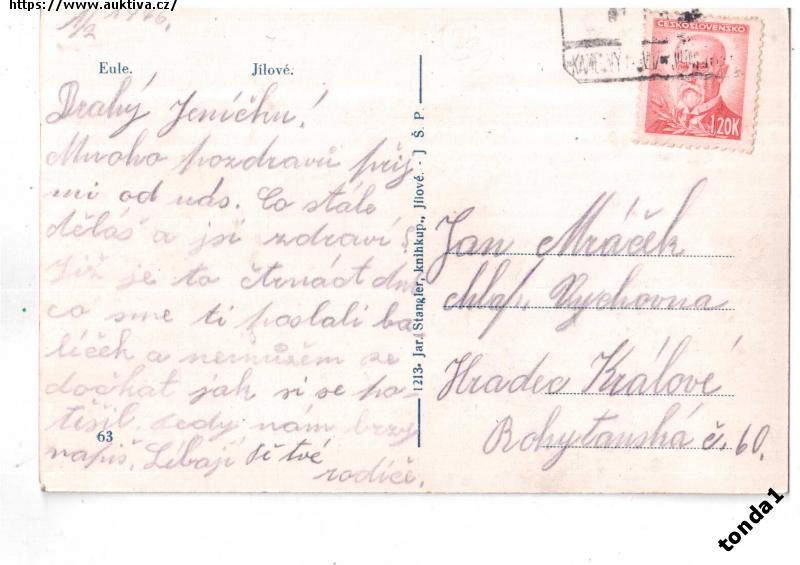 https://www.auktiva.cz/
1/2 1946.
Eule. Jílové.
Drahý Jeníčku!
Mnoho pozdravů přij
mi od nás. Co stále
děláš a jsi zdráví?
Již je to čtrnáct dní
co sme ti poslali ba
líček a nemůžem se
dočkat jak si se po
těšil. tedy nám brzy
napiš. Líbají Tě tvé
rodiče.
63
1213- Jar. Stangler, knihkup., Jílové. - J Š. P.
ČESKOSLOVENSKO
1,20K
KAMENNÝ
Jan Mráček
chlap. Vychovna
Hradec Králové
Rokytanská č. 60.
tonda1